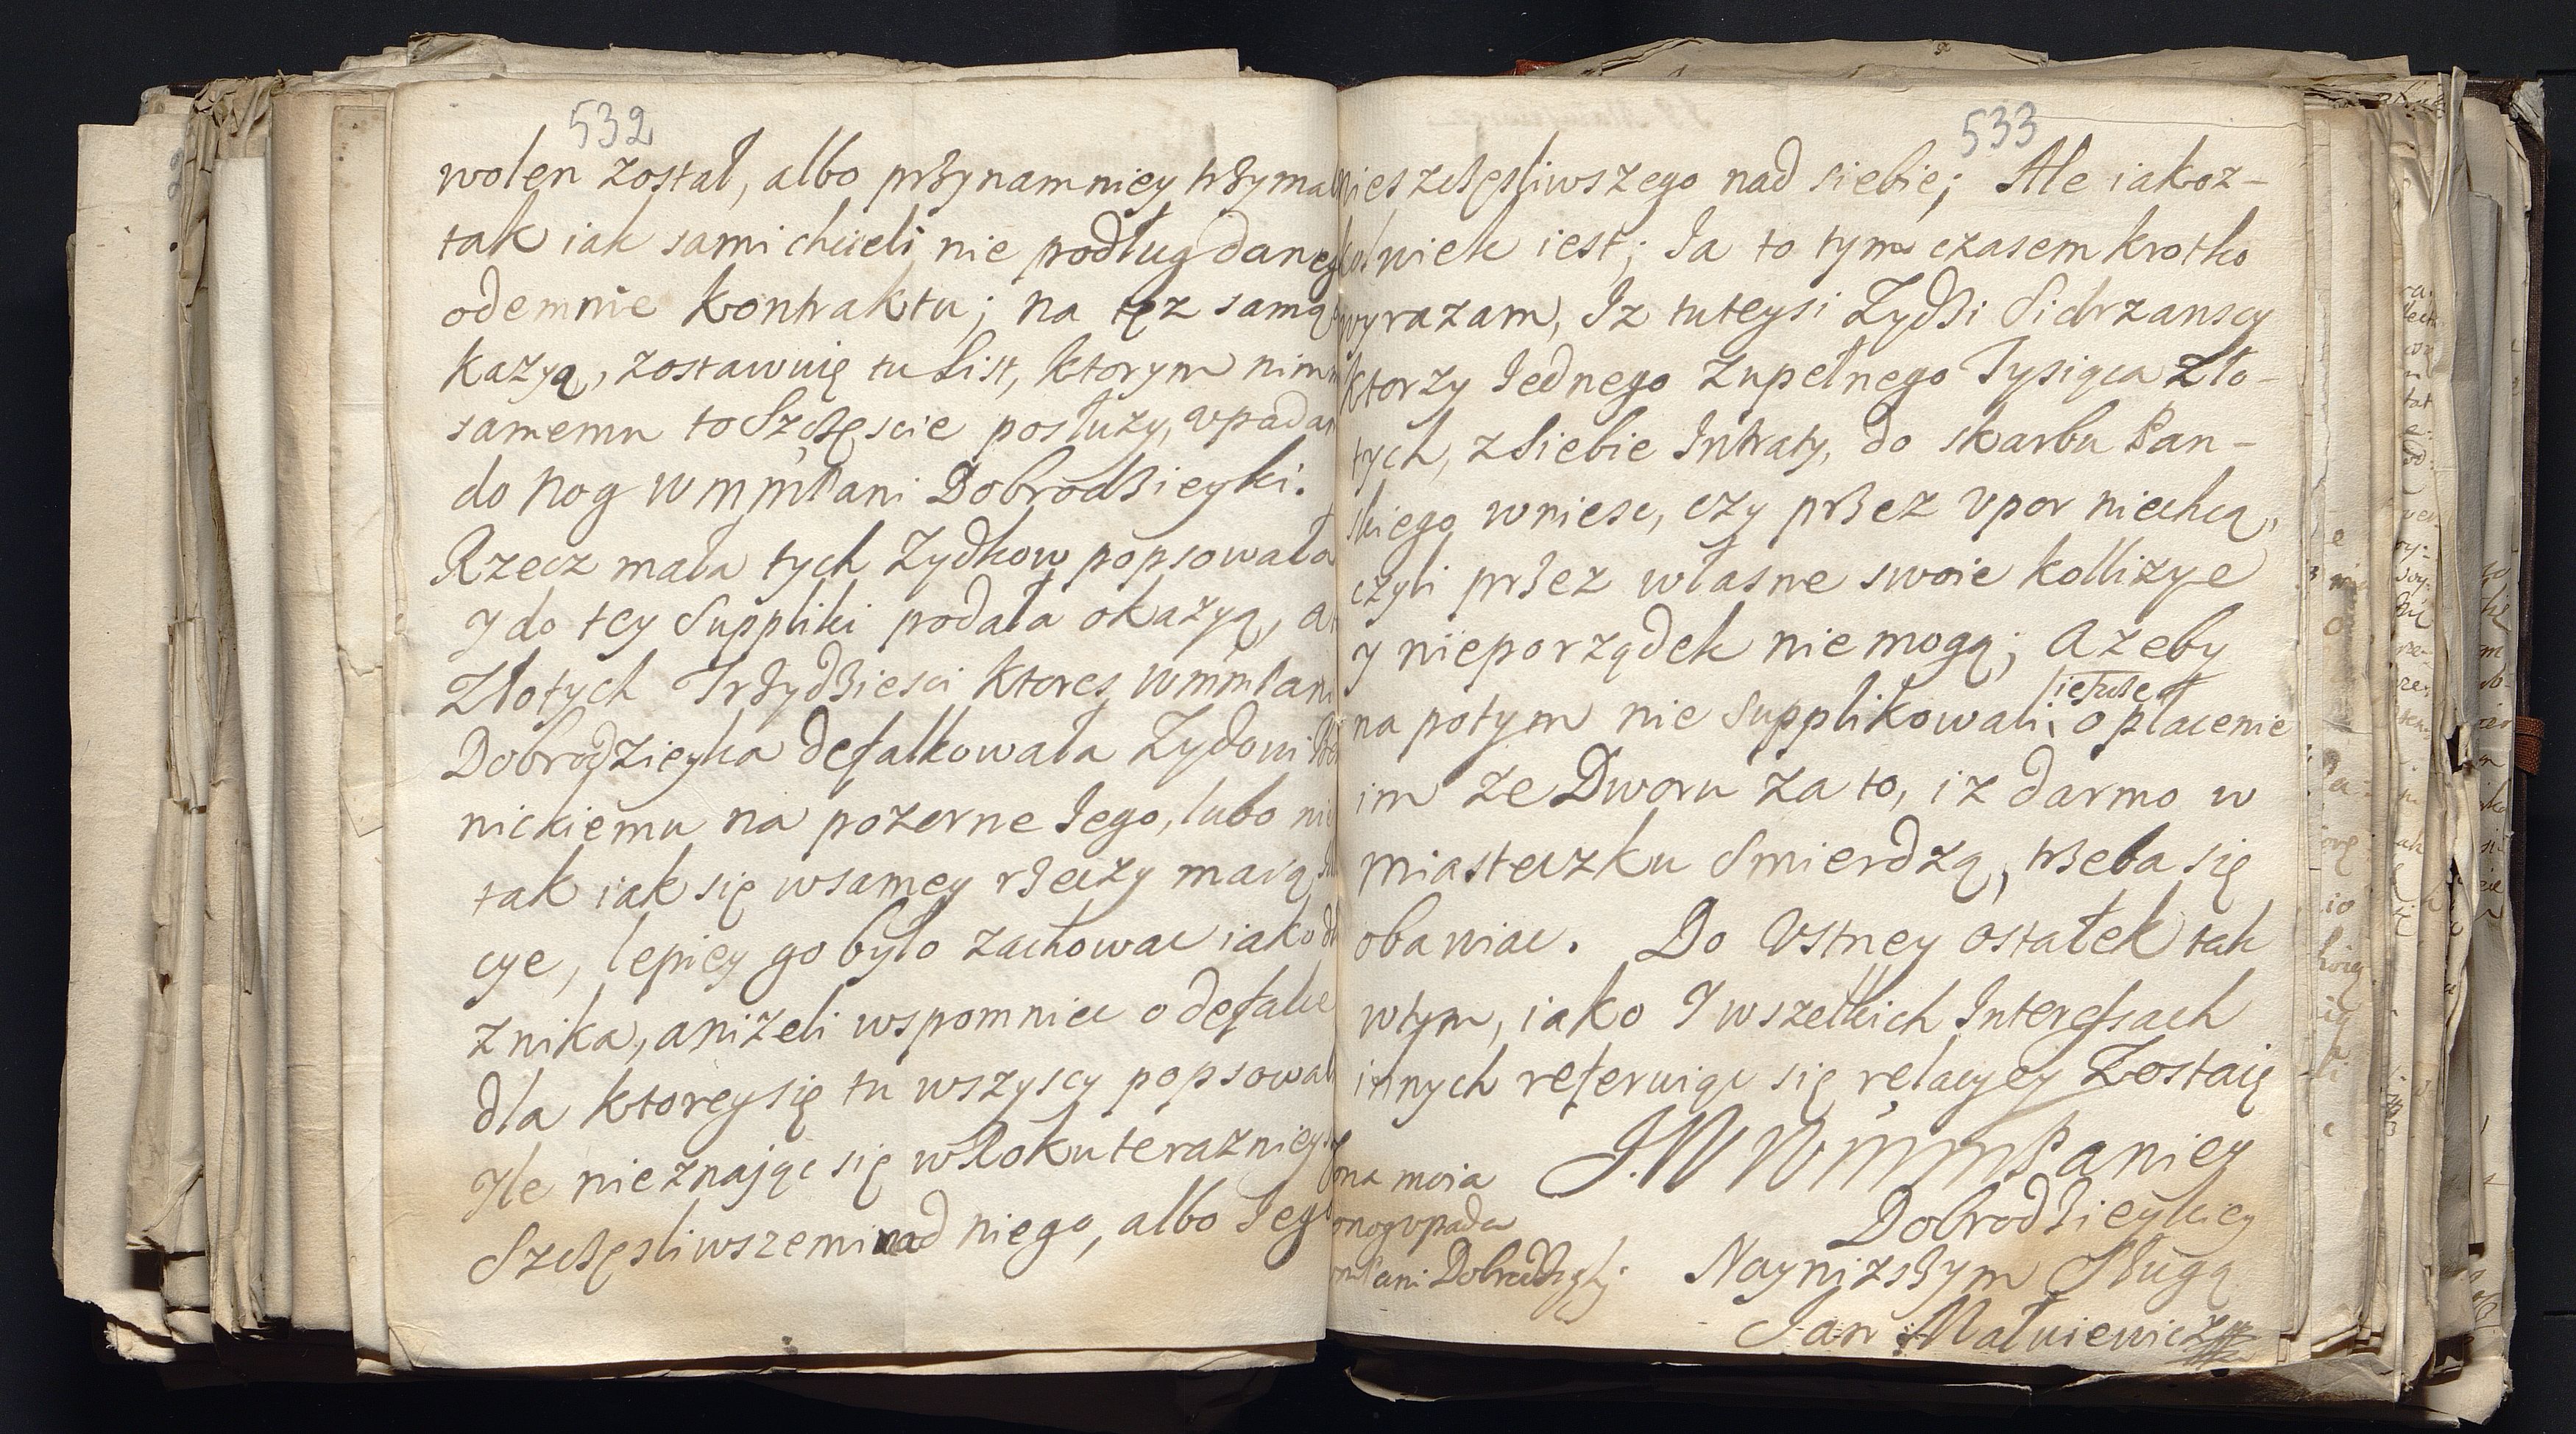 532
wolen został, albo przynamniey trzymał
tak iak sami chcieli nie podług daneg
odemnie kontraktu; na tęz samą
kazyą, zostawuię tu List, ktorym nim
samemu to Szczęscie posłuzy, vpadam
do nog WMMPani Dobrodzieyki.
Rzecz mała tych Zydkow popsowała
y do tey Suppliki podała okazyą, a
Złotych Trzydziesci ktores WMMPani
Dobrodzieyka defalkowała Zydowi
nickiemu na pozorne Jego, lubo nie
tak iak się wsamey rzeczy maią
cye, lepiey go było zachowac iako
znika, anizeli wspomniec o defalce
dla ktorey się tu wszyscy popsowali
Ile nieznając się w Roku terazniey
Szczęsliwszemi nad niego, albo Jego
533
nieszczęsliwszego nad siebie; Ale iakoz-
kolwiek iest; Ja to tym czasem krotko
wyrazam, Iz tuteysi Zydzi Sidrzanscy
ktorzy Jednego zupełnego Tysiąca Zło-
tych, z Siebie Intraty, do skarbu Pan-
skiego wniesc, czy przez vpor niechcą,
czyli przez własne swoie kollizye
y nieporządek nie mogą; Azeby
na potym nie Supplikowali, o płacenie
im ze Dworu za to, iz darmo w
miasteczku Smierdzą, trzeba się
obawiac. Do Vstney ostatek tak
wtym, iako y wszelkich Interessach
innych referuiąc się relacyey Zostaię
J.W WMMPaniey
Dobrodzieykiey
Nayniższym Sługą
Jan Matuiewicz
ona moia
onog vpada
mPani Dobrodzieyki